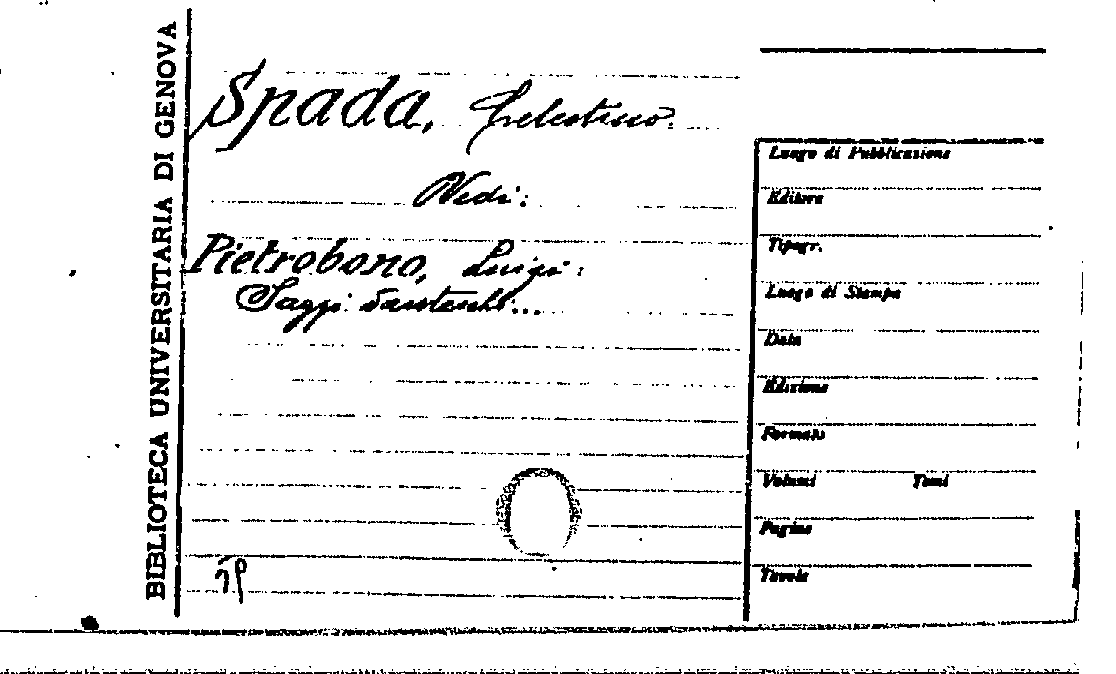 BIBLIOTECA UNIVERSITARIA DI GENOVA
Spada, Celestino.
Vedi:
Pietrobono, Luigi:
Saggi danteschi...
Luogo di Pubblicazione
Editore
Tipogr.
Luogo di Stampa
Data
Edizione
Formato
Volumi Tomi
Pagine
Tavole